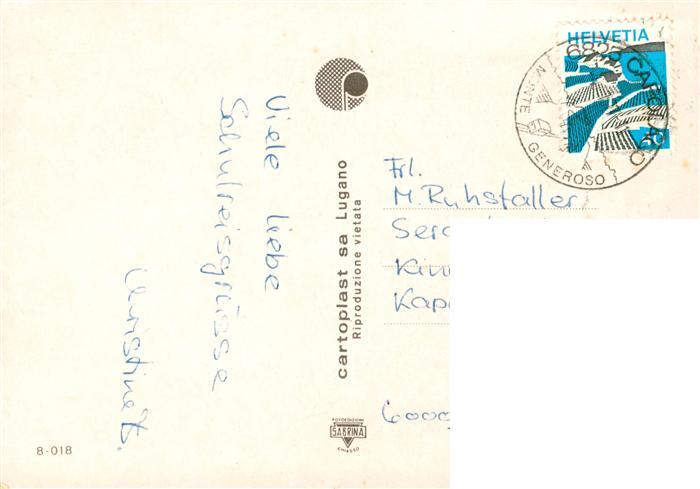 Viele liebe
Schulreisegrüsse
Christine Z.
8-018
cartoplast sa Lugano
Riproduzione vietata
FOTOEDIZIONI
SABRINA
CHIASSO
HELVETIA
6825 CAPOLAGO
MONTE GENEROSO
Frl.
M. Ruhstaller
Kap
6000